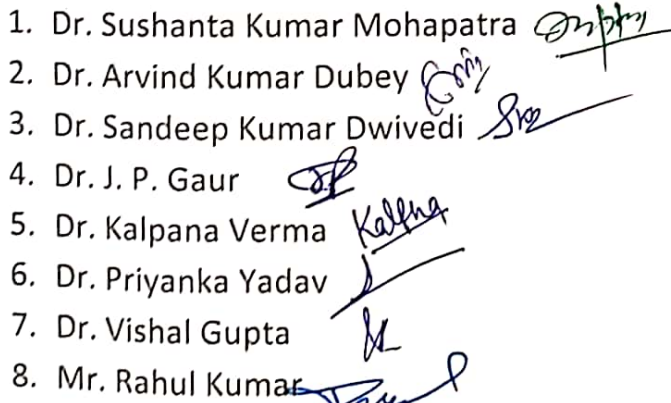 1. Dr. Sushanta Kumar Mohapatra
2. Dr. Arvind Kumar Dubey
3. Dr. Sandeep Kumar Dwivedi
4. Dr. J. P. Gaur
5. Dr. Kalpana Verma Kalpna
6. Dr. Priyanka Yadav
7. Dr. Vishal Gupta
8. Mr. Rahul Kumar